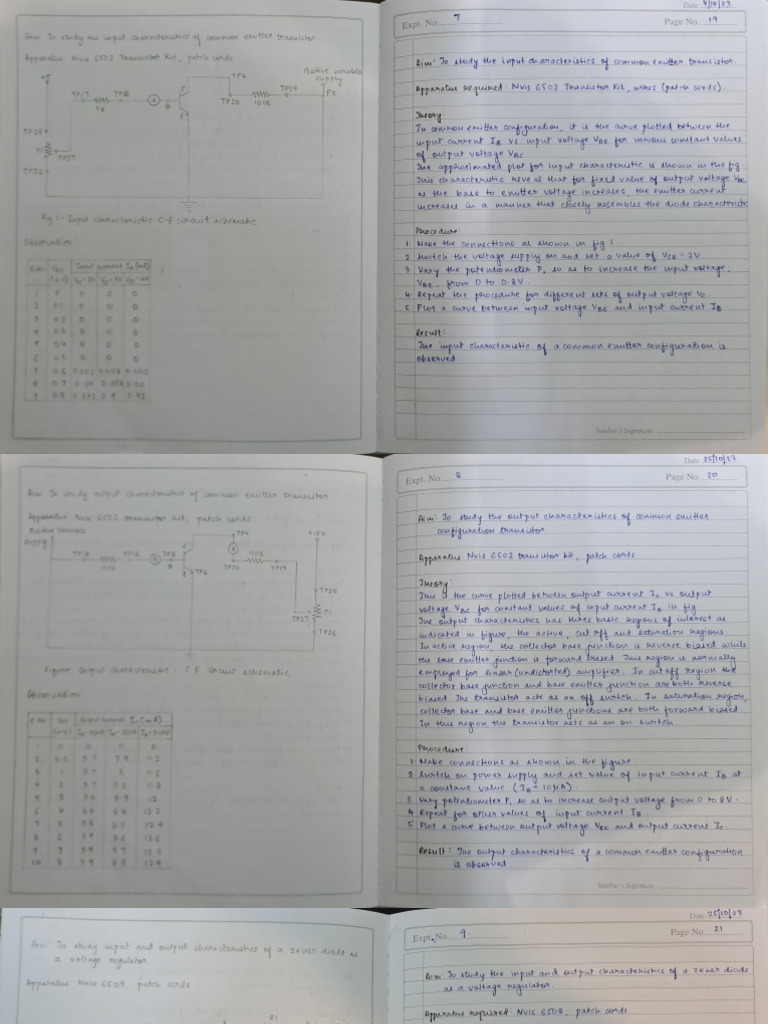 Aim: To study the input characteristics of common emitter transistor
Apparatus: Nvis 6502 Transistor Kit, patch cords
Positive variable
supply
TP4
TP17
TP18
A
B
C
E
TP20
100Ω
TP19
TP27
TP26
Fig 1- Input characteristic C-E circuit schematic
Observation
S.no VBE Input current IB (mA)
1 0 0 0 0
2 0.1 0 0 0
3 0.2 0 0 0
4 0.3 0 0 0
5 0.4 0 0 0
6 0.5 0 0 0
7 0.6 0.002 0.002 0.002
Date 4/10/23
Expt. No. 7
Page No. 19
Aim: To study the input characteristics of common emitter transistor.
Apparatus required: Nvis 6502 Transistor Kit, wires (patch cords).
Theory
In common emitter configuration, it is the curve plotted between the
input current IB vs input voltage VBE for various constant values
of output voltage VBC
The approximated plot for input characteristic is shown in the fig.
This characteristic reveal that for fixed value of output voltage VBC
as the base to emitter voltage increases, the emitter current
increases in a manner that closely resembles the diode characteristic
Procedure
1 Make the connections as shown in fig 1.
2 Switch the voltage supply on and set a value of VCE = 2V
3 Vary the potentiometer P1 so as to increase the input voltage,
VBE from 0 to 0.8V.
4 Repeat the procedure for different sets of output voltage VC
5 Plot a curve between input voltage VBE and input current IB
Result:
The input characteristic of a common emitter configuration is
observed
Teacher's Signature:
Aim: To study output characteristics of common emitter transistor
Apparatus: Nvis 6502 transistor kit, patch cords
Positive variable
supply
+12V
TP4
A
C
B
E
TP6
TP20
100Ω
TP19
TP28
P1
TP27
TP26
Figure: Output characteristic - C E circuit schematic
Observation
S.no
Output current Ic (mA)
1 0 0 0 0
Date 25/10/23
Expt. No. 8
Page No. 20
Aim: To study the output characteristics of common emitter
configuration transistor.
Apparatus: Nvis 6502 transistor kit, patch cords.
Theory:
This is the curve plotted between output current Ic vs output
voltage VBC for constant values of input current IB in fig
The output characteristics has three basic regions of interest as
indicated in figure, the active, cut off and saturation regions
In active region, the collector base junction is reverse biased while
the base emitter junction is forward biased. This region is normally
employed for linear (undistorted) amplifier. In cut off region the
collector base junction and base emitter junction are both reverse
biased. The transistor acts as an off switch. In saturation region,
collector base and base emitter junctions are both forward biased
In this region the transistor acts as an on switch.
Procedure
1 Make connections as shown in the figure
2 Switch on power supply and set value of input current IB at
a constant value (IB = 10μA)
3 Vary potentiometer P1 so as to increase output voltage from 0 to 8V.
4 Repeat for other values of input current IB.
5 Plot a curve between output voltage VBC and output current Ic
Result: The output characteristics of a common emitter configuration
is observed.
Teacher's Signature
Aim: To study input and output characteristics of a zener diode as
a voltage regulator
Apparatus: Nvis 6508, patch cords
R1
Date 25/10/23
Expt. No. 9
Page No. 21
Aim: To study the input and output characteristics of a zener diode
as a voltage regulator.
Apparatus required: Nvis 6508, patch cords